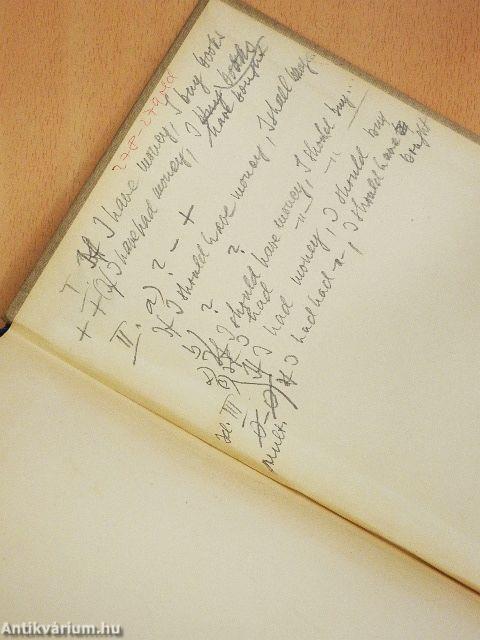 278-279 old
I If I have money, I buy books
+ + If I have had money, I buy books
have bought
II. a) ? - +
If I should have money, I shall buy...
b) ? ?
a) If I should have money, I should buy...
b) If I had - " - - " -
III If I had money, I should buy
If I had had - " -, I should have
bought
mult.
Antikvárium.hu